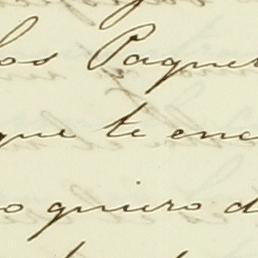 los Paque
que te enc
o quiero d